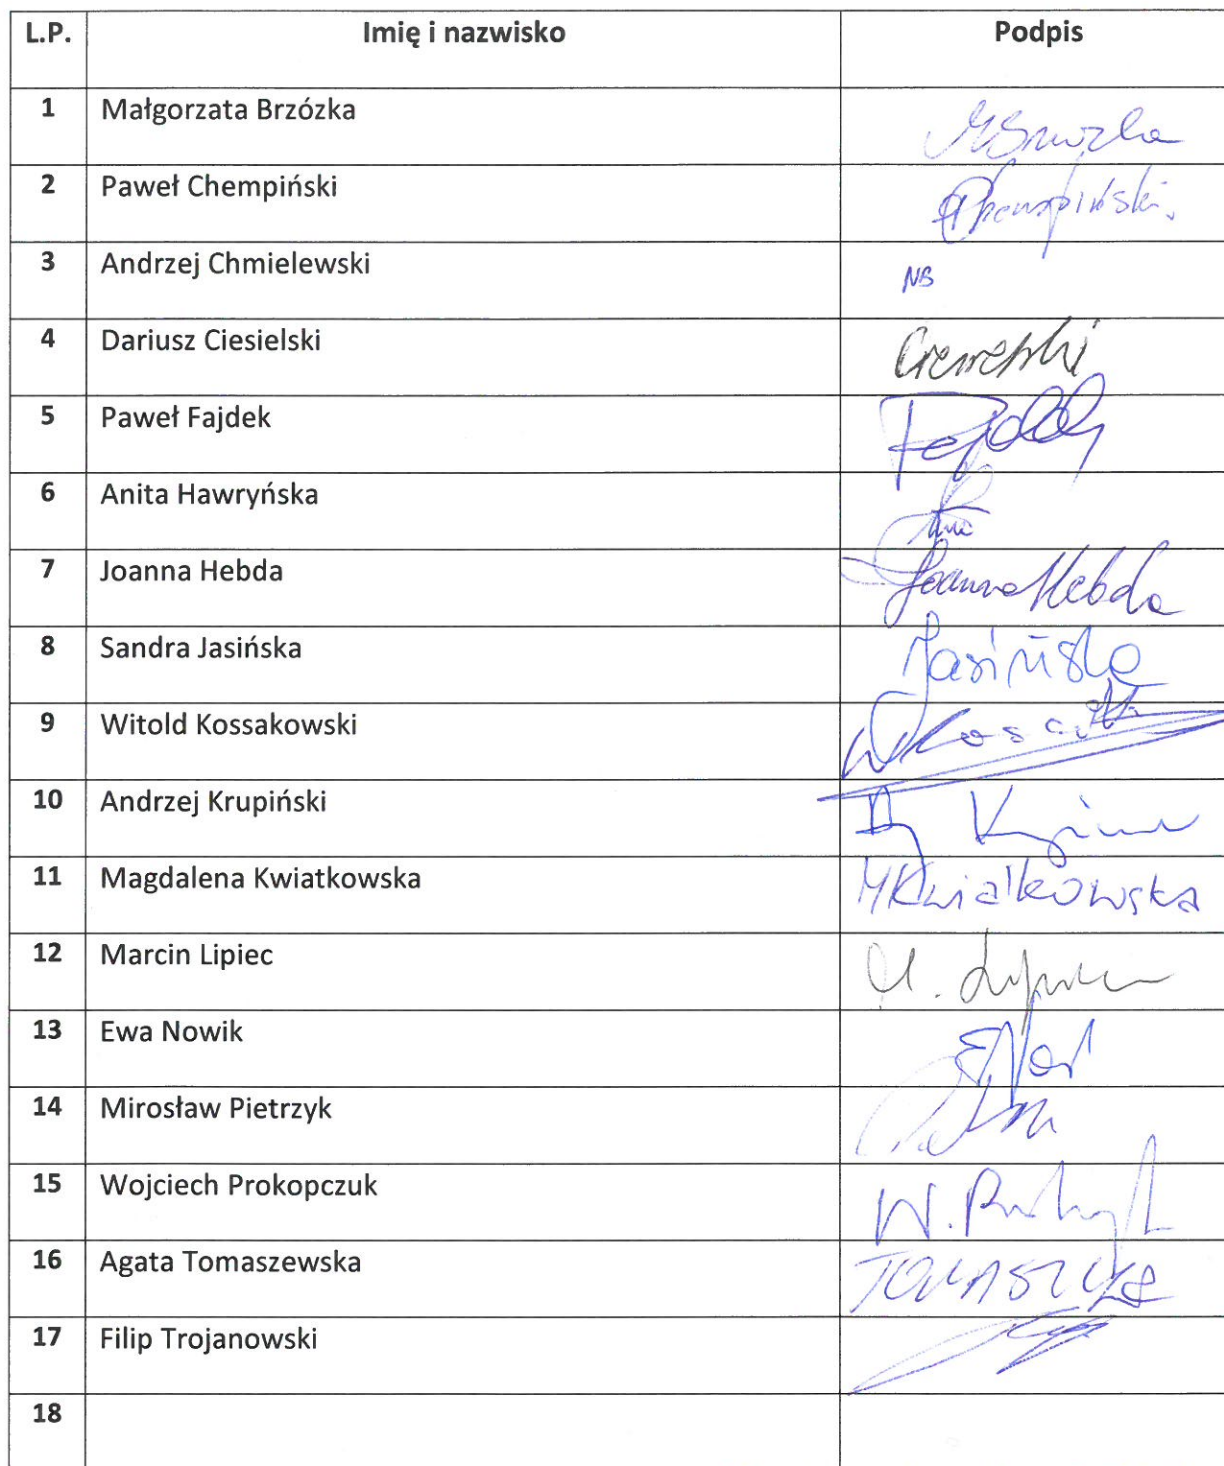 L.P. Imię i nazwisko Podpis
1 Małgorzata Brzózka MBrzozka
2 Paweł Chempiński Chempiński
3 Andrzej Chmielewski NB
4 Dariusz Ciesielski Ciesielski
5 Paweł Fajdek Fajdek
6 Anita Hawryńska
7 Joanna Hebda Joanna Hebda
8 Sandra Jasińska Jasińska
9 Witold Kossakowski
10 Andrzej Krupiński
11 Magdalena Kwiatkowska MKwiatkowska
12 Marcin Lipiec M. Lipiec
13 Ewa Nowik
14 Mirosław Pietrzyk
15 Wojciech Prokopczuk
16 Agata Tomaszewska
17 Filip Trojanowski
18